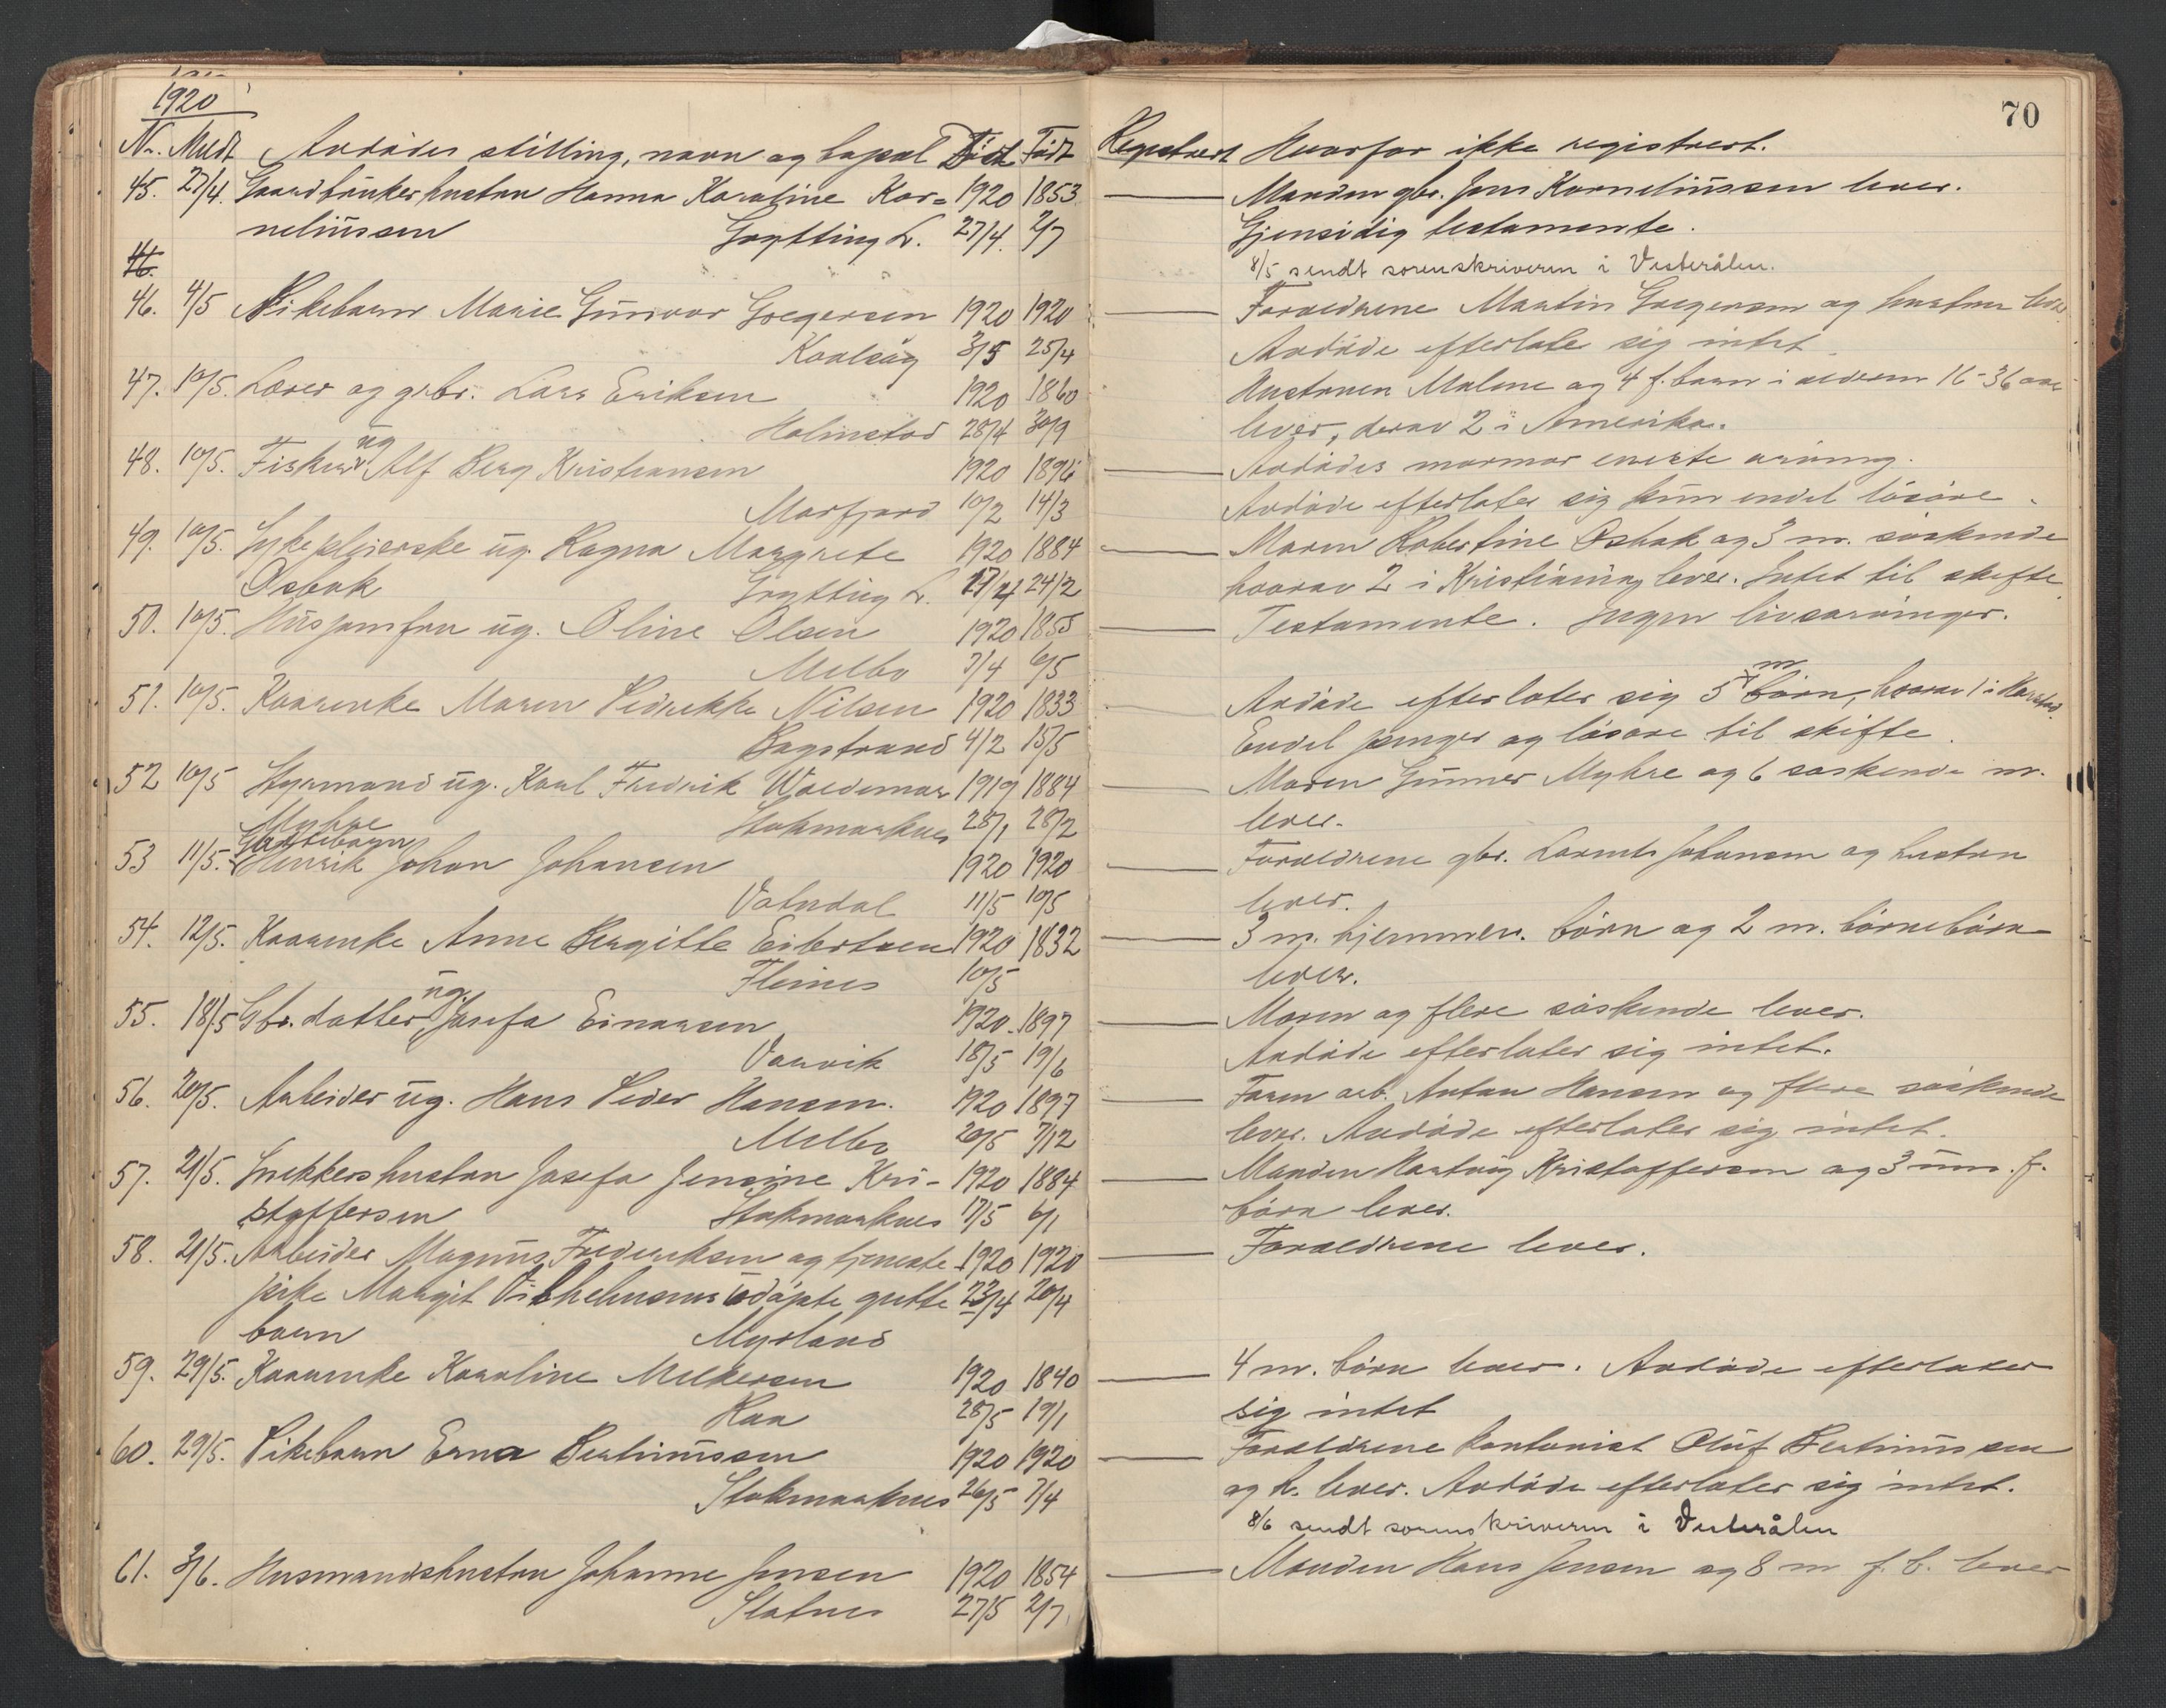 1920
70
Nr. Meldt Avdødes stilling, navn og bopæl Død Født Registrert Hvorfor ikke registrert.
45. 27/4. Gaardbrukerhustru Hanna Karoline Kor= 1920 1853 Manden gbr. Jens Korneliussen lever.
neliussen Grytting L. 27/4. 2/7 Gjensidig testamente.
46.
8/5 sendt sorenskriveren i Vesterålen.
46. 4/5 Pikebarn Marie Gunvor Gregersen 1920 1920 Forældrene Martin Gregersen og hustru lever
3/5 25/4 Avdøde efterlater sig intet.
47. 10/5. Lærer og grbr. Lars Eriksen 1920 1860 Hustruen Malene og 4 f. barn i alderen 16-36 aar
Holmstad 28/4 30/9 lever, derav 2 i Amerika.
48. 10/5. Fisker ug Alf Berg Kristiansen 1920 1896 Avdødes mormor eneste arving.
Morfjord 10/2 14/3 Avdøde efterlater sig kun endel løsøre.
49. 10/5. Sykepleierske ug. Ragna Margrete 1920 1884 Moren Robertine Osbak og 3 m. søskende
Osbak Grytting L. 17/4 24/2 hvorav 2 i Kristiania lever. Intet til skifte
50. 10/5. Husjomfru ug. Oline Olsen 1920 1855 Testamente. Ingen livsarvinger.
Melbo 7/4 6/5
51. 10/5. Kaarenke Maren Pedrikke Nilsen 1920 1833 Avdøde efterlater sig 5 m børn, hvorav 1 i Harstad.
Bogstrand 4/2 15/5 Endel penger og løsøre til skifte.
52 10/5 Styrmand ug. Karl Fredrik Waldemar 1919 1884 Moren Gunner Myhre og 6 søskende m.
Myhre Stokmarknes 28/1 28/2 lever.
53 11/5. Guttebarn Henrik Johan Johansen 1920 1920 Forældrene gbr. Lorents Johansen og hustru
Vatndal 11/5 10/5 lever.
54. 12/5. Kaarenke Anne Bergitte Eilertsen 1920 1832 3 m. hjemmev. børn og 2 m. børnebørn
Fleines 10/5 lever.
55. 18/5 Gbr. datter ug. Josefa Einarsen 1920 1897 Moren og flere søskende lever.
Vorvik 18/5 19/6 Avdøde efterlater sig intet.
56. 20/5. Arbeider ug. Hans Peder Hansen. 1920 1897 Faren arb. Anton Hansen og flere søskende
Melbo 20/5 7/12 lever. Avdøde efterlater sig intet.
57. 21/5. Snekkershustru Josefa Jensine Kri- 1920 1884 Manden Hartvig Kristoffersen og 3 um. f.
stoffersen Stokmarknes 17/5 6/1 børn lever.
58. 21/5. Arbeider Magnus Frederiksen og tjeneste 1920 1920 Forældrene lever.
pike Margit Vilhelmsens udøpte gutte 23/4 20/4
barn Myrland
59. 29/5. Kaarenke Karoline Melkersen 1920 1840 4 m. børn lever. Avdøde efterlater
Raa 28/5 19/1 sig intet
60. 29/5. Pikebarn Erna Bertinussen 1920 1920 Forældrene kontorist Oluf Bertinussen
Stokmarknes 26/5 7/4 og h. lever. Avdøde efterlater sig intet.
8/6 sendt sorenskriveren i Vesterålen
61. 3/6. Husmandshustru Johanne Jensen 1920 1854 Manden Hans Jensen og 8 m f. b. lever
Slotnes 27/5 2/7